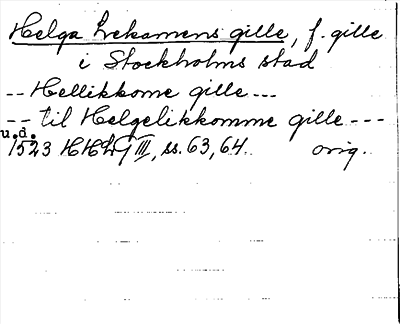 Helga Lekamens gille, f. gille
i Stockholms stad
-- Hellikkome gille ---
-- til Helgelikkomme gille ---
u.d.
1523 HHLG III, ss. 63, 64. orig.